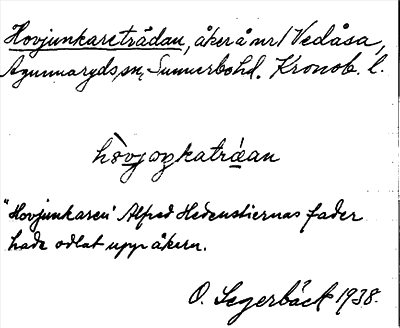 Hovjunkareträdan, åker å nr 1 Vedåsa,
Agunnaryds sn, Sunnerbo hd. Kronob. l.
hòvjoŋkatráan
"Hovjunkaren" Alfred Hedenstiernas fader
hade odlat upp åkern.
O. Segerbäck 1938.